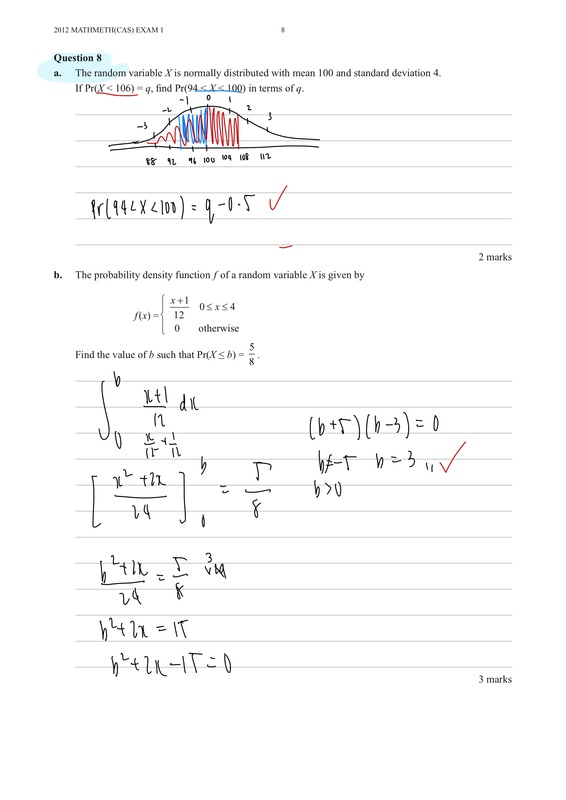 2012 MATHMETH(CAS) EXAM 1 8
Question 8
a. The random variable X is normally distributed with mean 100 and standard deviation 4.
If Pr(X < 106) = q, find Pr(94 < X < 100) in terms of q.
-3 -2 -1 0 1 2 3
88 92 96 100 104 108 112
Pr(94<X<100) = q - 0.5 ✓
2 marks
b. The probability density function f of a random variable X is given by
f(x) = { (x+1)/12 0 ≤ x ≤ 4
0 otherwise
Find the value of b such that Pr(X ≤ b) = 5/8 .
∫₀ᵇ (x+1)/12 dx
x/12 + 1/12
[(x² + 2x)/24]₀ᵇ = 5/8
(b²+2x)/24 = 5/8
b²+2x = 15
b²+2x-15 = 0
(b+5)(b-3) = 0
b≠-5 b = 3 ✓
b>0
3 marks